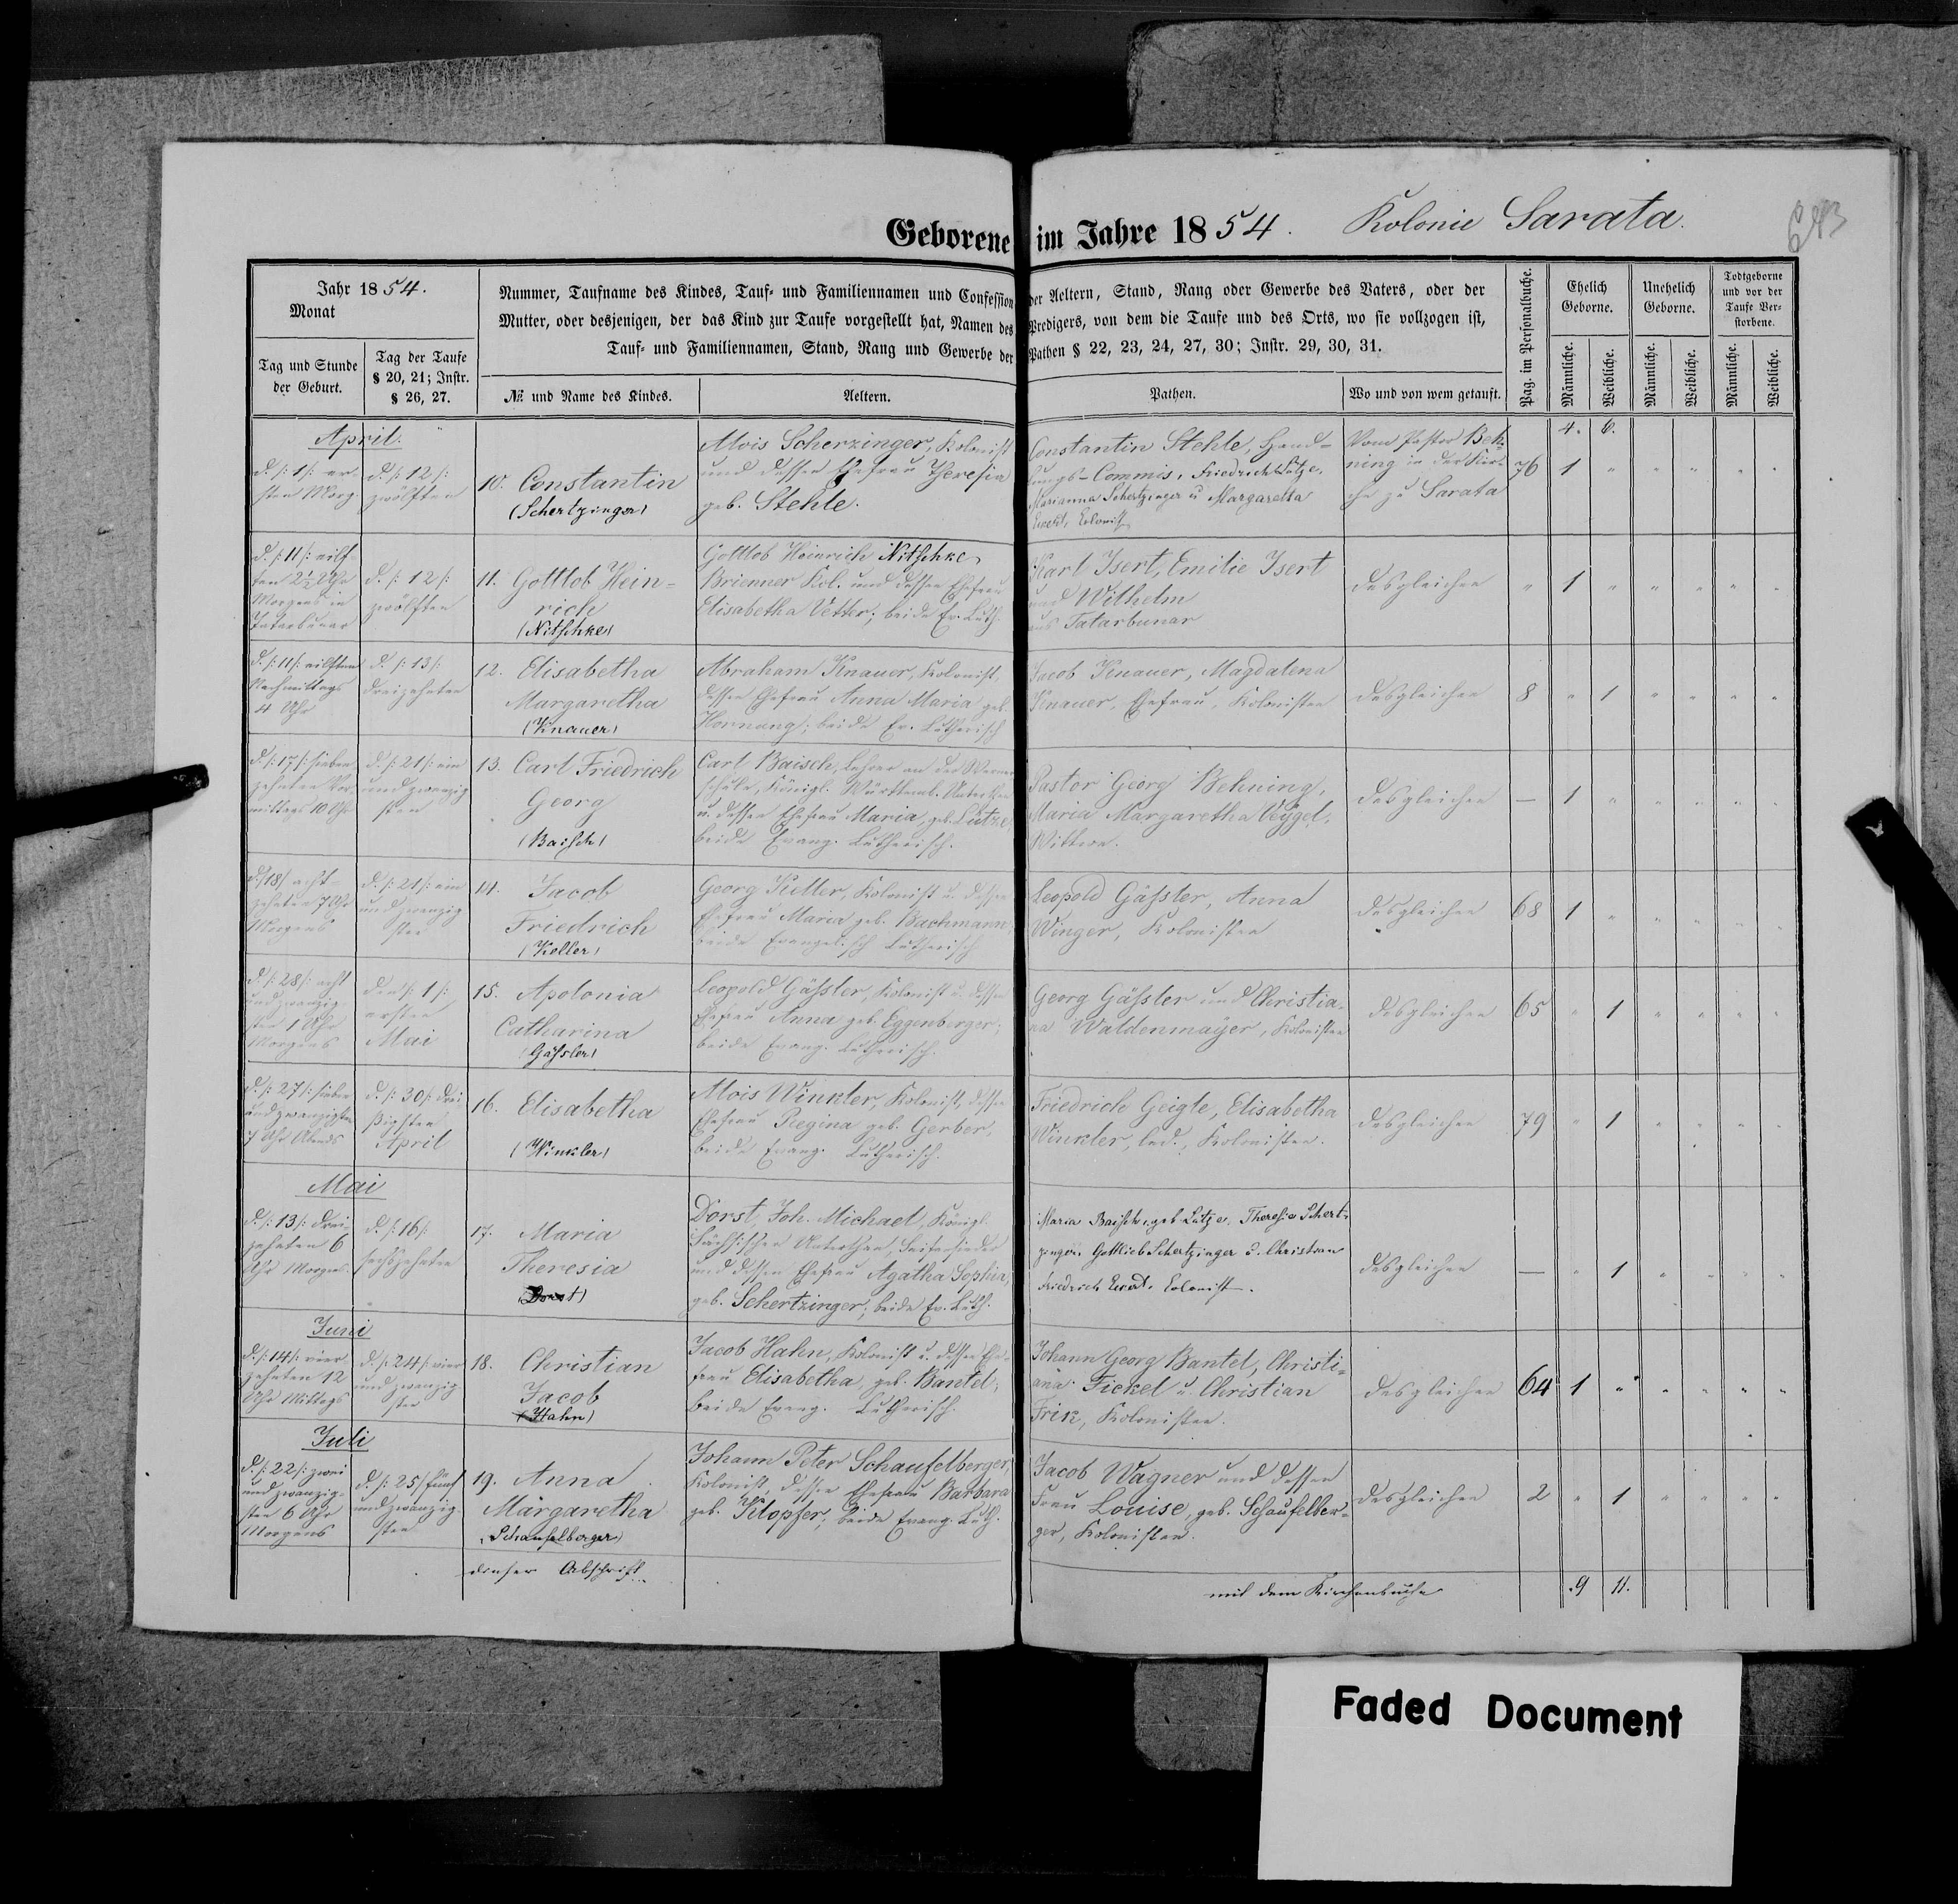 Geborene im Jahre 1854. Kolonie Sarata.
643
Jahr 1854.
Monat
Tag und Stunde
der Geburt.
Tag der Taufe
§ 20, 21; Instr.
§ 26, 27.
Nummer, Taufname des Kindes, Tauf- und Familiennamen und Confession der Aeltern, Stand, Rang oder Gewerbe des Vaters, oder der
Mutter, oder desjenigen, der das Kind zur Taufe vorgestellt hat, Namen des Predigers, von dem die Taufe und des Orts, wo sie vollzogen ist,
Tauf- und Familiennamen, Stand, Rang und Gewerbe der Pathen § 22, 23, 24, 27, 30; Instr. 29, 30, 31.
№ und Name des Kindes.
Aeltern.
Pathen.
Wo und von wem getauft.
Pag. im Personalbuche.
Ehelich
Geborne.
Unehelich
Geborne.
Todtgeborne
und vor der
Taufe Ver-
storbene.
Männliche.
Weibliche.
Männliche.
Weibliche.
Männliche.
Weibliche.
4. 6.
April.
d. /:1:/ er-
sten Morg.
d. /:12:/
zwölften
10. Constantin
(Schertzinger)
Alois Scherzinger, Kolonist
und dessen Ehefrau Theresia
geb. Stehle.
Constantin Stehle, Hand-
lungs-Commis, Friedrich Lütze,
Marianna Schertzinger u Margaretha
Colonist
Vom Pastor Beh-
ning in der Kir-
che zu Sarata
76 1 " " " " "
d. /:11:/ eilf-
ten 2½ Uhr
Morgens in
Tatarbunar
d. /:12:/
zwölften
11. Gottlob Hein-
rich
(Nitschke)
Gottlob Heinrich Nitschke
Brienner Kol. und dessen Ehefrau
Elisabetha Vetter; beide Ev. Luth.
Karl Isert, Emilie Isert
und Wilhelm
aus Tatarbunar
desgleichen
" 1 " " " " "
d. /:11:/ eilften
Nachmittags
4 Uhr
d. /:13:/
dreizehnten
12. Elisabetha
Margaretha
(Knauer)
Abraham Knauer, Kolonist,
dessen Ehefrau Anna Maria geb.
Hornung; beide Ev. Lutherisch
Jacob Knauer, Magdalena
Knauer, Ehefrau, Kolonisten
desgleichen
8 " 1 " " " "
d. /:17:/ sieben-
zehnten Vor-
mittags 10 Uhr
d. /:21:/ ein
und zwanzig
sten
13. Carl Friedrich
Georg
(Baisch)
Carl Baisch, Lehrer an der Werner
schule, Königl. Württemb. Unterthan
u. dessen Ehefrau Maria, geb. Lütze
beide Evang. Lutherisch.
Pastor Georg Behning,
Maria Margaretha Veygel,
Wittwe.
desgleichen
— 1 " " " " "
d. /18/ acht
zehnten 7 Uhr
Morgens
d. /:21:/ ein
und zwanzig
sten
14. Jacob
Friedrich
(Keller)
Georg Keller, Kolonist u. dessen
Ehefrau Maria geb. Bachmann,
beide Evangelisch Lutherisch
Leopold Gässler, Anna
Winger, Kolonisten
desgleichen
68 1 " " " " "
d. /:28:/ acht
und zwanzig-
sten 1 Uhr
Morgens
den /:1:/
ersten
Mai
15. Apolonia
Catharina
(Gässler)
Leopold Gässler, Kolonist u. dessen
Ehefrau Anna geb. Eggenberger;
beide Evang. Lutherisch.
Georg Gässler und Christia-
na Waldenmaÿer, Kolonisten
desgleichen
65 " 1 " " " "
d. /:27:/ sieben
und zwanzigsten
7 Uhr Abends
d. /:30:/ drei
ßigsten
April
16. Elisabetha
(Winkler)
Alois Winkler, Kolonist, dessen
Ehefrau Regina geb. Gerber,
beide Evang. Lutherisch.
Friedrich Geigle, Elisabetha
Winkler, led., Kolonisten.
desgleichen
79 " 1 " " " "
Mai
d. /:13:/ drei-
zehnten 6
Uhr Morgens.
d. /:16:/
sechszehnten
17. Maria
Theresia
(Dorst)
Dorst, Joh. Michael, Königl.
Sächsischer Unterthan, Seifensieder
und dessen Ehefrau Agatha Sophia,
geb. Schertzinger; beide Ev. Luth.
Maria Baisch, geb. Lütze, Theresia Schert-
zinger, Gottlieb Schertzinger u. Christian
Friedrich Colonist.
desgleichen
— " 1 " " " "
Juni
d. /:14:/ vier
zehnten 12
Uhr Mittags
d. /:24:/ vier
und zwanzig
sten
18. Christian
Jacob
(Hahn)
Jacob Hahn, Kolonist u. dessen Ehe-
frau Elisabetha geb. Bantel,
beide Evang. Lutherisch.
Johann Georg Bantel, Christi-
ana Fickel u. Christian
Frik, Kolonisten.
desgleichen
64 1 " " " " "
Juli
d. /:22:/ zwei
und zwanzig-
sten 6 Uhr
Morgens
d. /:25/ fünf
und zwanzig
sten
19. Anna
Margaretha
(Schaufelberger)
Johann Peter Schaufelberger,
Kolonist, dessen Ehefrau Barbara
geb. Klopfer; beide Evang. Luth.
Jacob Wagner und dessen
Frau Louise, geb. Schaufelber-
ger, Kolonisten.
desgleichen
2 " 1 " " " "
dieser Abschrift
mit dem Kirchenbuche
9 11.
Faded Document